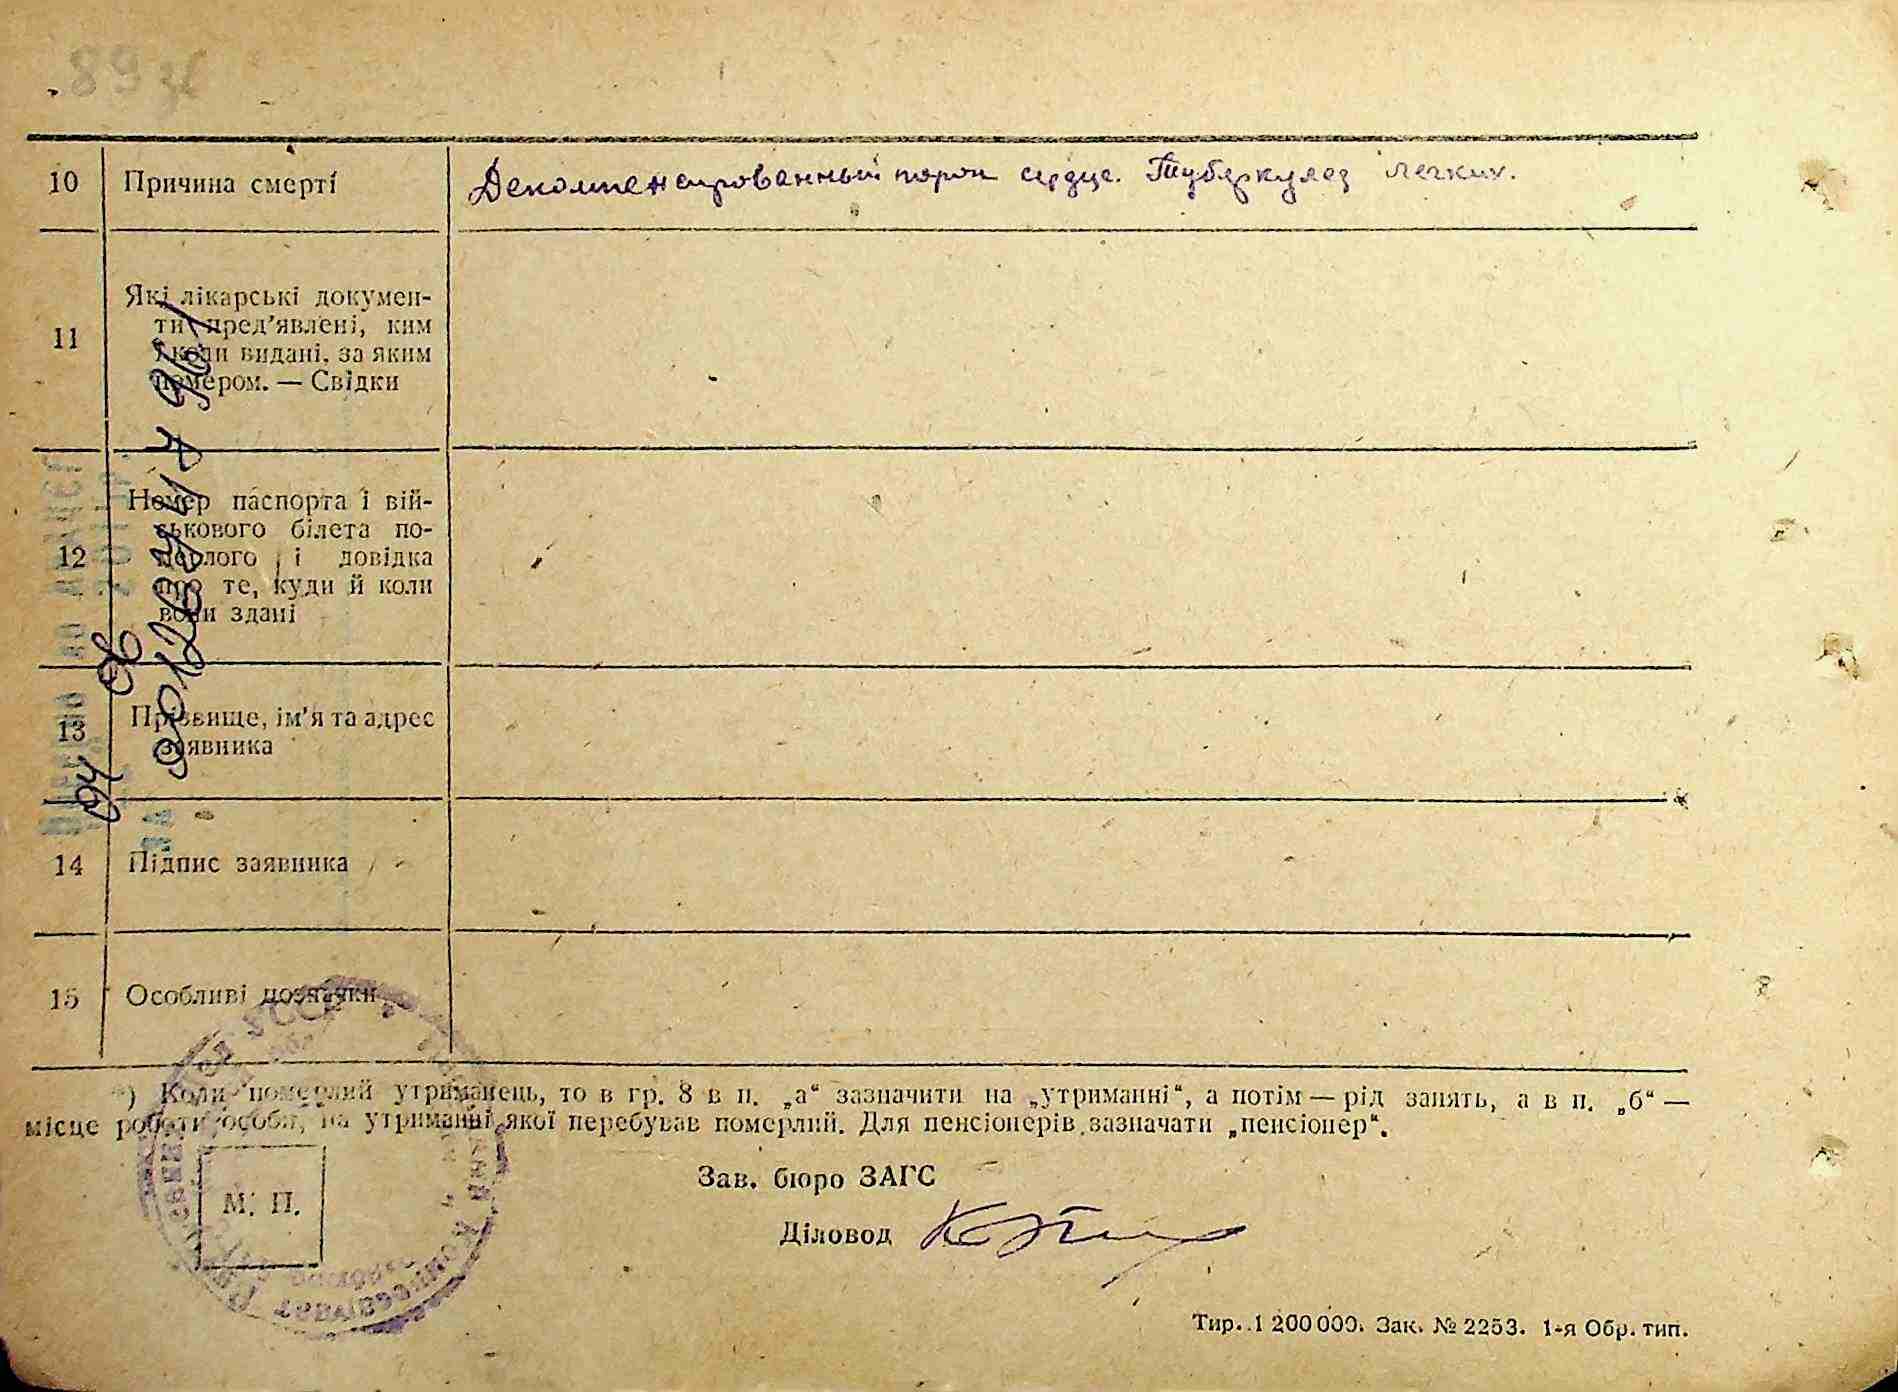 10 Причина смерті Декомпенсированный порок сердца. Туберкулез легких.
11 Які лікарські докумен-
ти пред'явлені, ким
і коли видані, за яким
номером. — Свідки
12 Номер паспорта і вій-
ськового білета по-
мерлого і довідка
про те, куди й коли
вони здані
13 Прізвище, ім'я та адрес
заявника
14 Підпис заявника
15 Особливі позначки
*) Коли померлий утриманець, то в гр. 8 в п. „а“ зазначити на „утриманні“, а потім — рід занять, а в п. „б“ —
місце роботи особи, на утриманні якої перебував померлий. Для пенсіонерів зазначати „пенсіонер“.
М. П.
Зав. бюро ЗАГС
Діловод
Тир. 1 200 000. Зак. № 2253. 1-я Обр. тип.